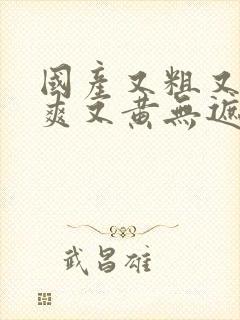 國產又粗又
爽又黃無遮
武昌雄